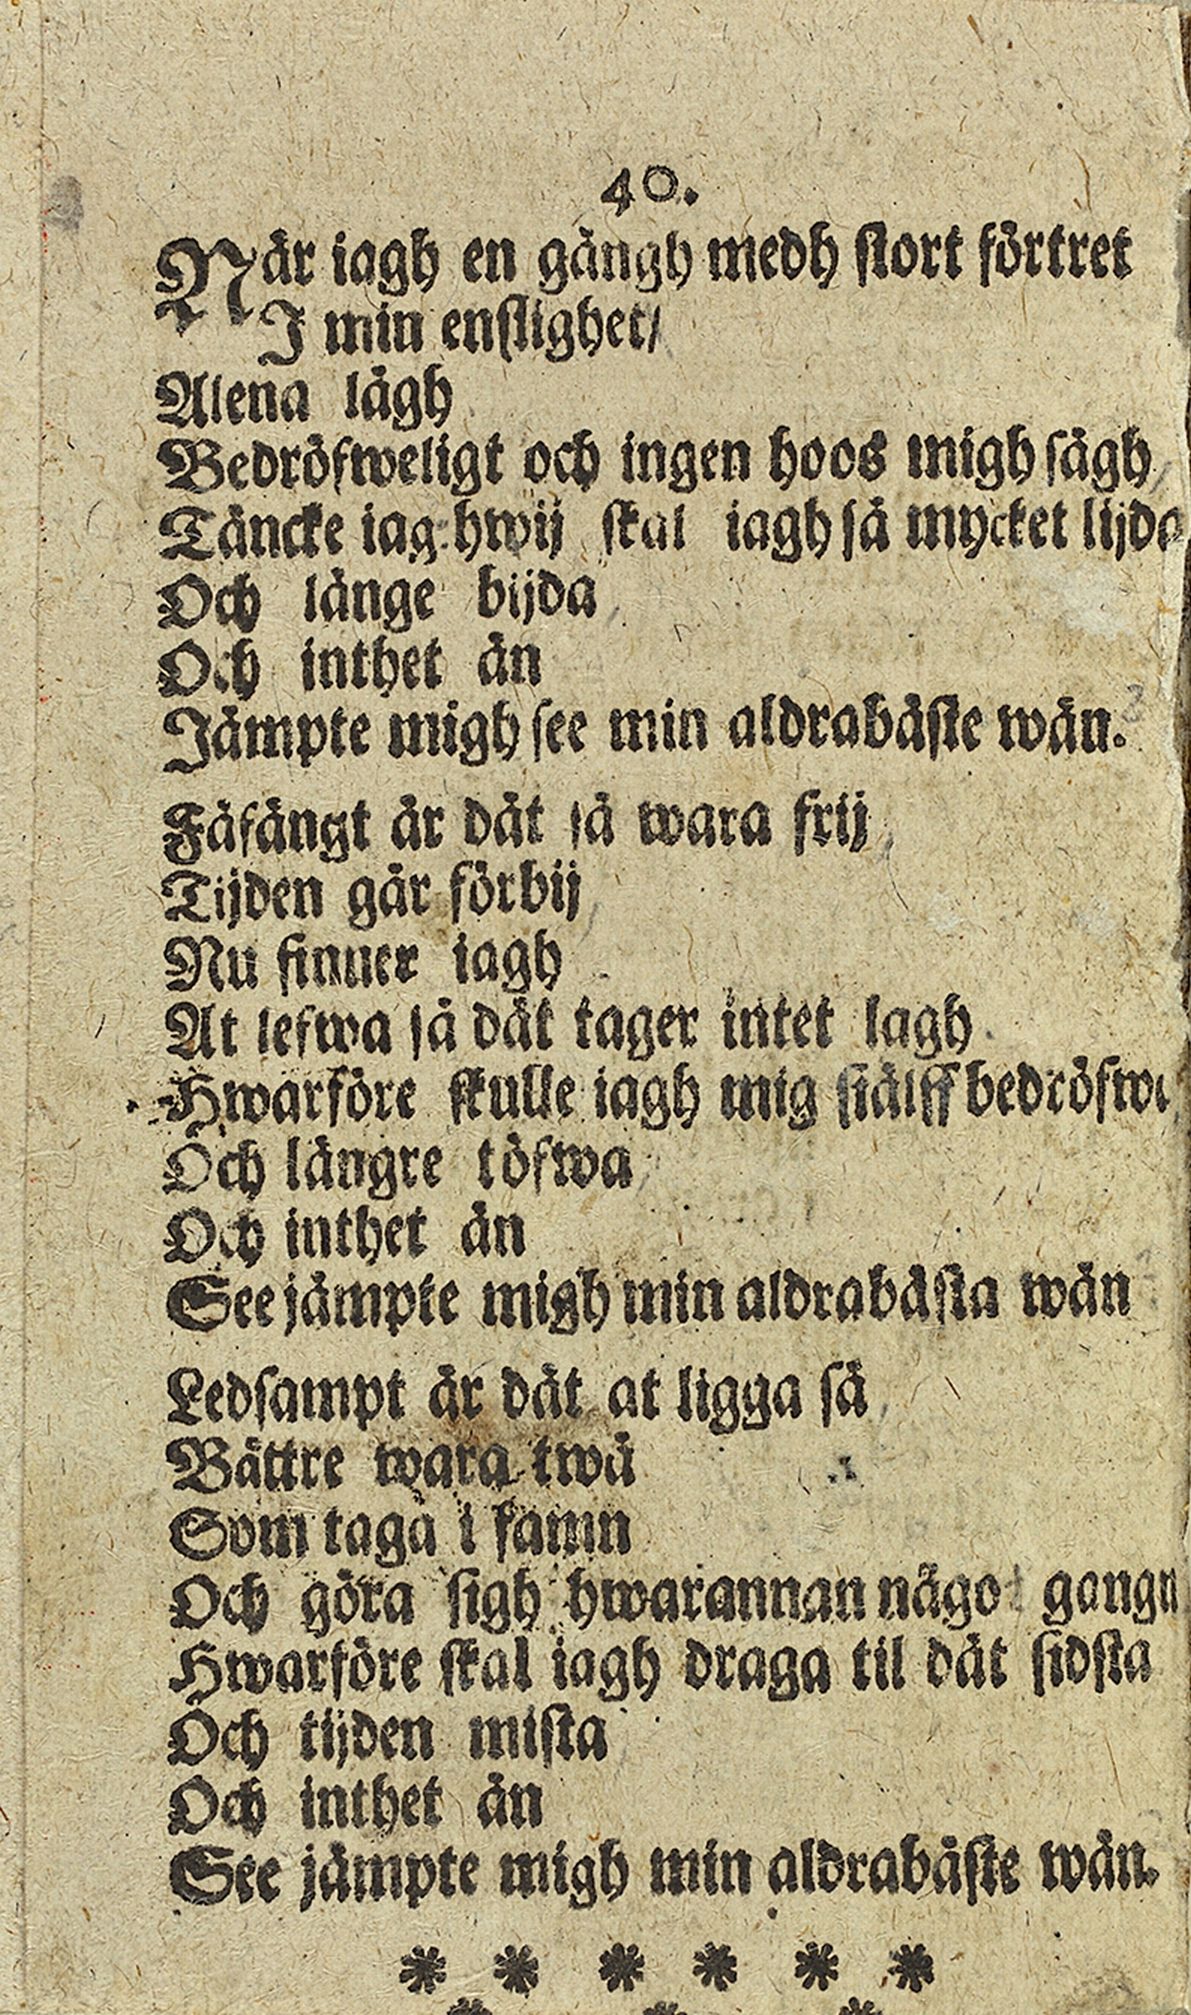 40.
När iagh en gångh medh stort förtret
I min enslighet/
Alena lågh
Bedröfweligt och ingen hoos migh sågh
Täncke iag hwij skal iagh så mycket lijda
Och länge bijda
Och inthet än
Jämpte migh see min aldrabäste wän.
Fåfängt är dät så wara frij
Tijden går förbij
Nu finner iagh
At lefwa så dät tager intet lagh
Hwarföre skulle iagh mig siälff bedröfwa
Och längre töfwa
Och inthet än
See jämpte migh min aldrabästa wän
Ledsampt är dät at ligga så
Bättre wara twå
Som taga i famn
Och göra sigh hwarannan något gangn
Hwarföre skal iagh draga til dät sidsta
Och tijden mista
Och inthet än
See jämpte migh min aldrabäste wän.